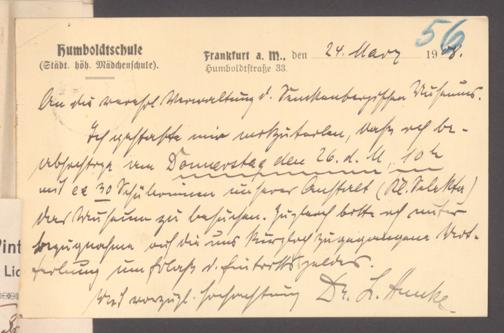 56
Humboldtschule
(Städt. höh. Mädchenschule).
Frankfurt a. M., den 24. März 1908.
Humboldtstraße 33.
An die verehrl. Verwaltung d. Senckenbergischen Museums.
Ich gestatte mir mitzuteilen, dass ich be-
absichtige am Donnerstag den 26. d. M., 10 h
mit ca 30 Schülerinnen unserer Anstalt (Kl. Selekta)
das Museum zu besuchen. Zugleich bitte ich unter
Bezugnahme auf die uns kürzlich zugegangene Mit-
teilung um Erlass d. Eintrittsgeldes.
Mit vorzügl. Hochachtung Dr. L.